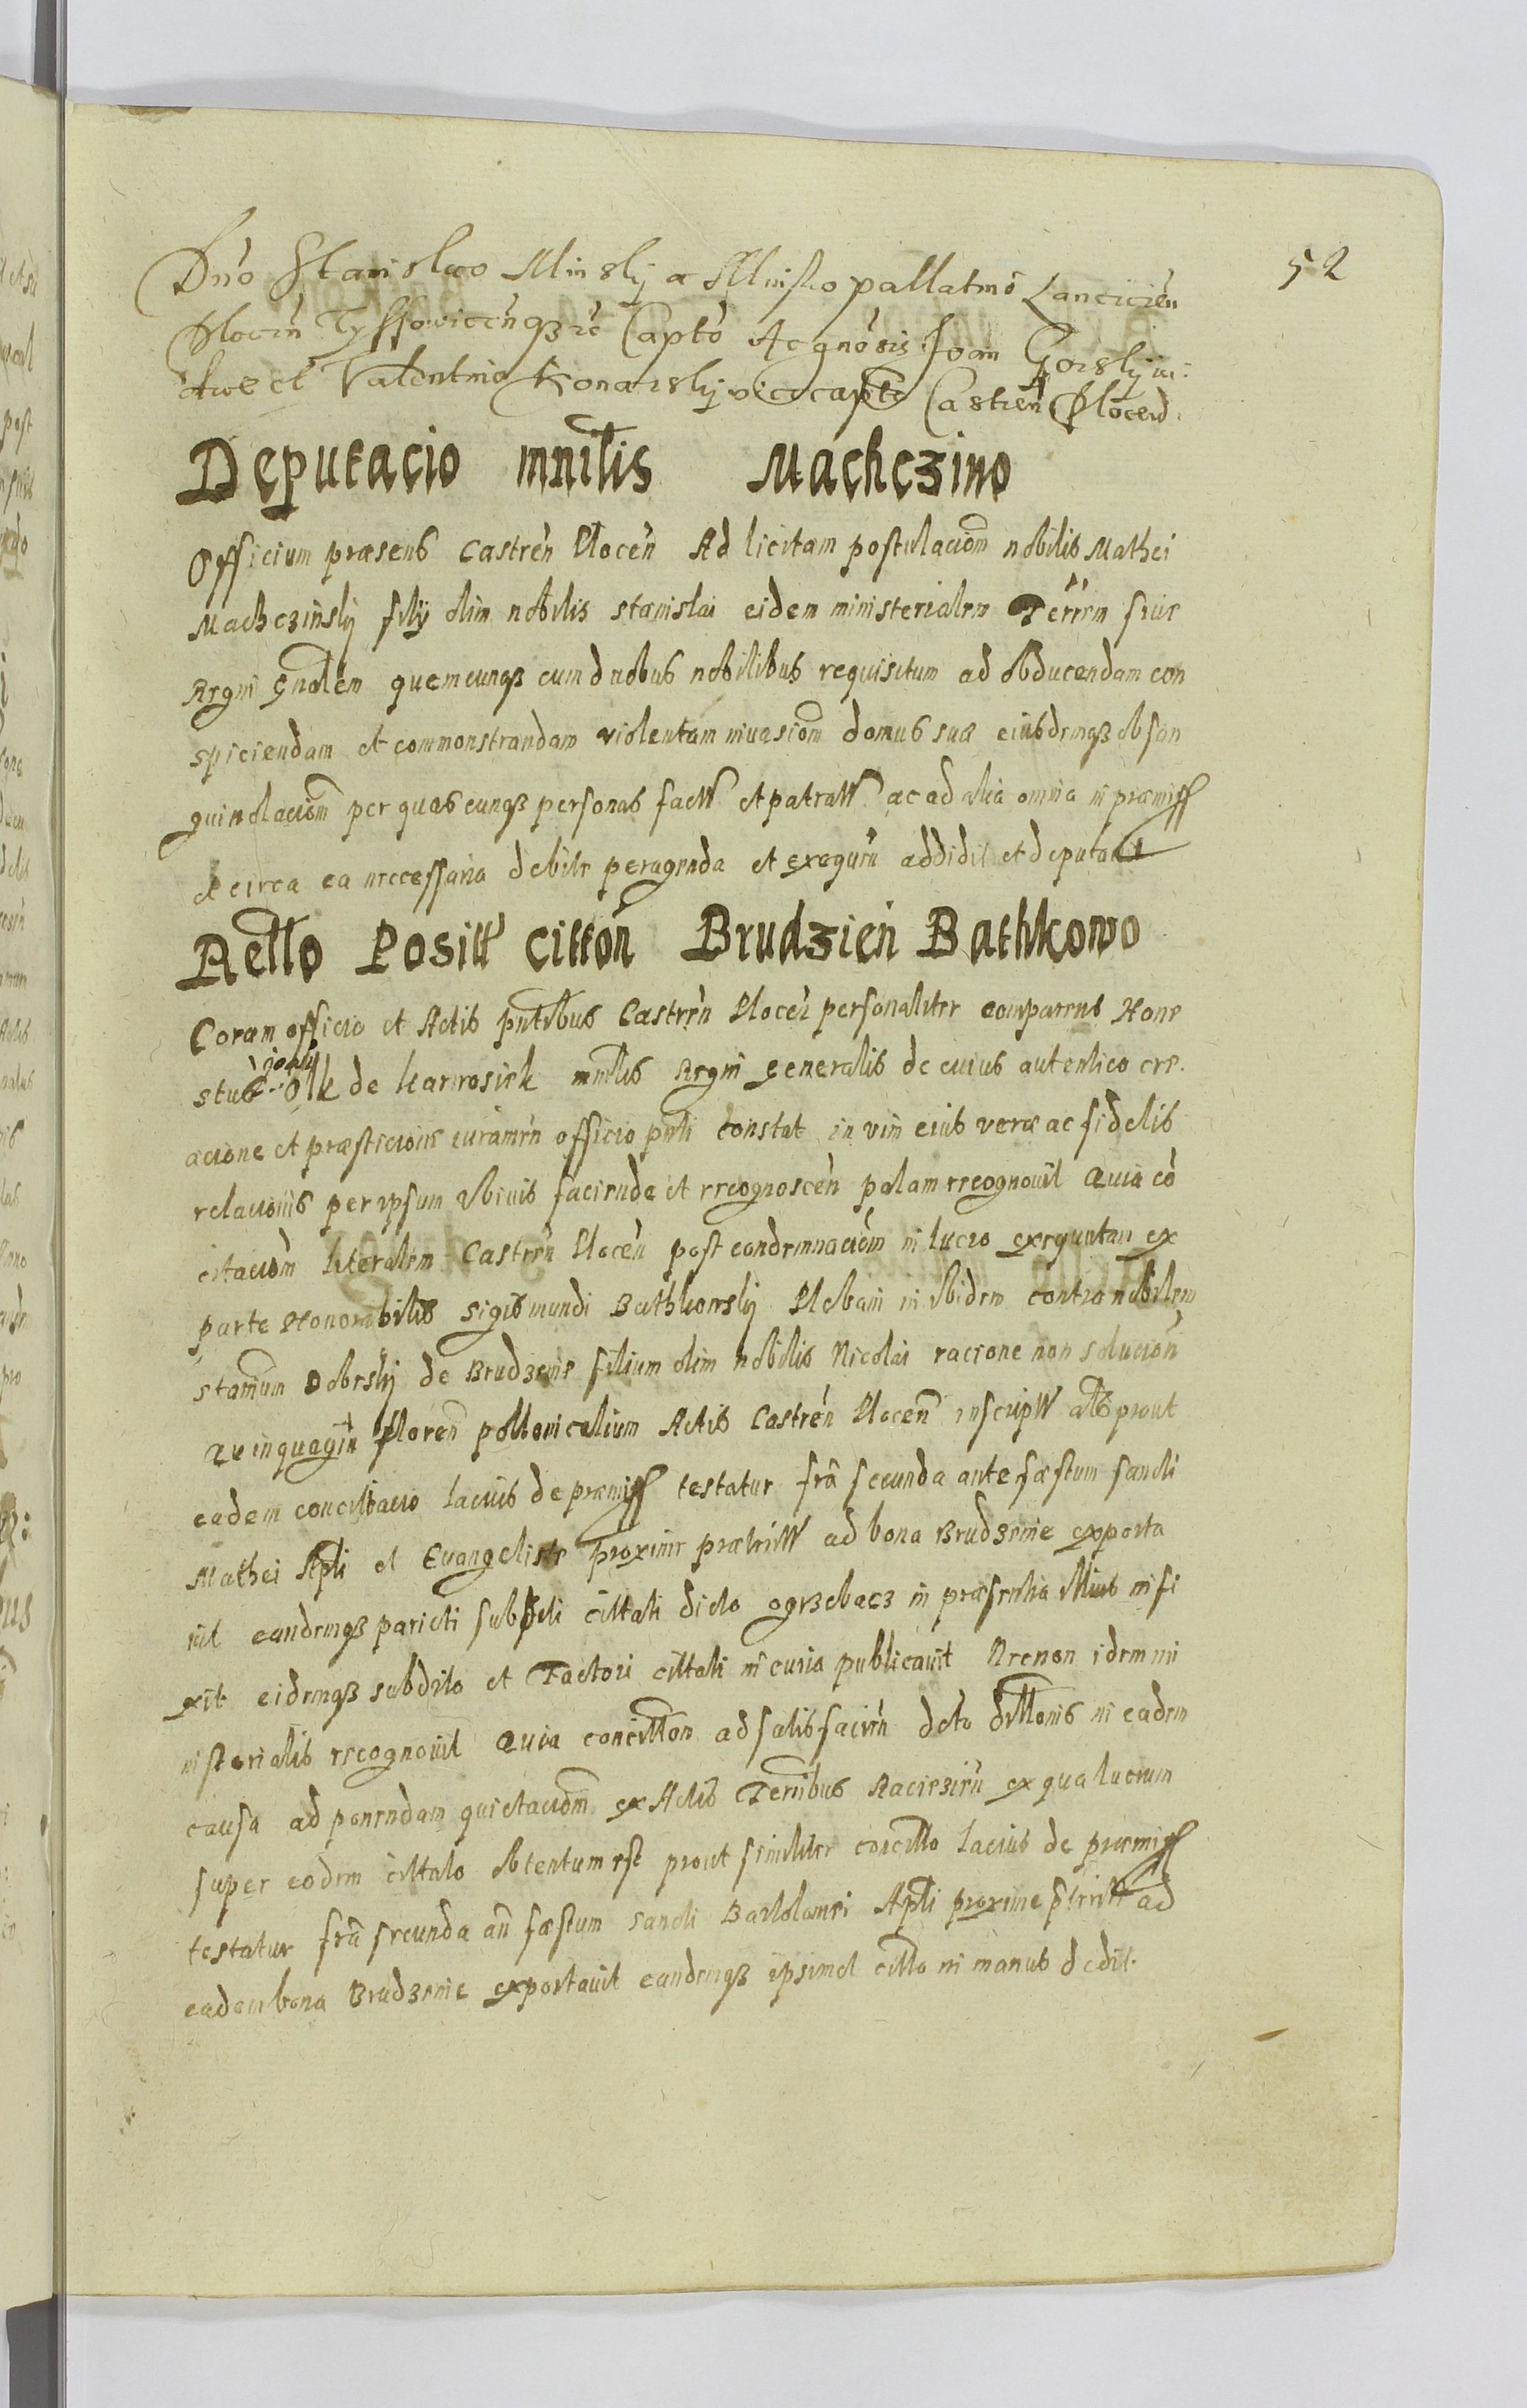 52
Dno Stanislao Minsky a Minsko pallatino Lancicien
Plocen Tyssoviceñqз rc Capto Ac gnosis Joan Gorsky iu:
dice et Valentino Konarsky vicecapto Castren Plocen
Deputacio mnilis Machczino
Officium præsens Castren Plocen Ad licitam postulaciom nobilis Mathei
Machczinsky fily olim nobilis Stanislai eidem ministerialem Terrm siue
Regni gnalem quemcunqз cum duobus nobilibus requisitum ad obducendam con
spiciendam et commonstrandam violentam inuasiom domus suæ eiusdemqз obsan
guinolaciom per quascunqз personas factt et patratt ac ad alia omnia in præmiss
et circa ea necessaria debite peragenda et exequen addidit et deputauit
Rello Positt citton Brudzien Bathkowo
Coram officio et Actis pntibus Castren Plocen personaliter comparens Hone
stus Olk de Karwosiek mnilis Regni generalis de cuius autentico cre
acione et præsticione iuramen officio pnti constat in vim eius veræ ac fidelis
relacionis per ipsum obiuis faciende et recognoscen palam recognouit Quia co
citaciom literalem Castren Plocen post condemnaciom in lucro exequutan ex
parte Honorabilis Sigismundi Bathkowsky Plebani inibidem contra nobilem
Stanium Dobrsky de Brudzenie filium olim nobilis Nicolai racione non solucion
Quinquagin floren pollonicalium Actis Castren Plocen inscriptt als prout
eadem concittacio lacius de præmiss testatur fra secunda ante fæstum sancti
Mathei Apli et Euangeliste proxime præteritt ad bona Brudzenie exporta
uit eandemqз parieti subditi cittati dicto ogrzebacz in præsentia illius infi
xit eidemqз subdito et Factori cittati in curia publicauit Necnon idem mi
nisterialis recognouit Quia concitton ad satisfacien dcto dittonis in eadem
causa ad ponendam quietaciom ex Actis Terribus Raciezien ex qua lucrum
super eodem cittato obtentum est prout similiter concitto lacius de præmiss
testatur fra secunda an fæstum sancti Bartolomei Apli proxime ptritt ad
eadem bona Brudzenie exportauit eandemqз ipsimet citto in manus dedit.